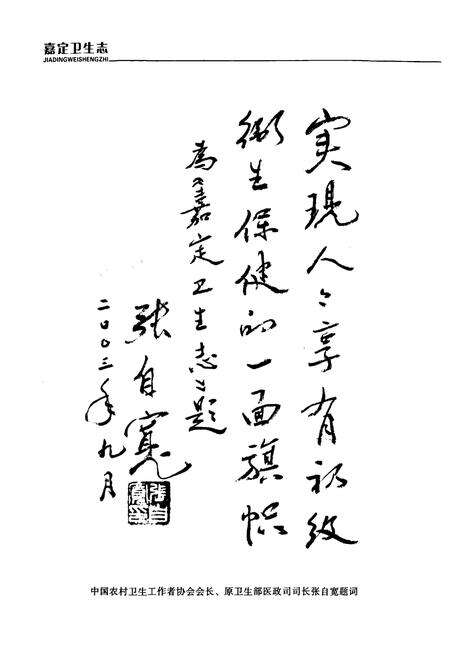 嘉定卫生志
JIADINGWEISHENGZHI
实現人々享有初级
衛生保健的一面旗帜
為《嘉定卫生志》题
張自寬
二〇〇三年九月
張自寬印
中国农村卫生工作者协会会长、原卫生部医政司司长张自宽题词